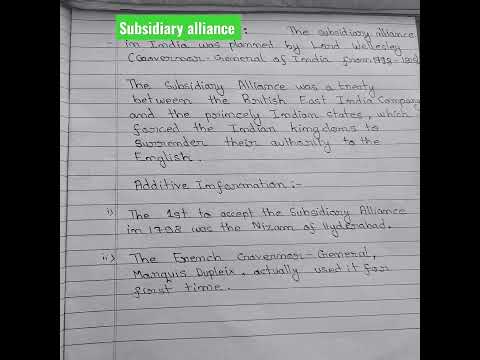 Subsidiary alliance
: The subsidiary alliance
in India was planned by Lord Wellesley
(Governor-General of India from 1798-
The Subsidiary Alliance was a treaty
between the British East India Company
and the princely Indian states, which
forced the Indian kingdoms to
surrender their authority to the
English.
Additive Information :-
i) The 1st to accept the Subsidiary Alliance
in 1798 was the Nizam of Hyderabad.
ii) The French Governor-General,
Marquis Dupleix, actually used it for
first time.